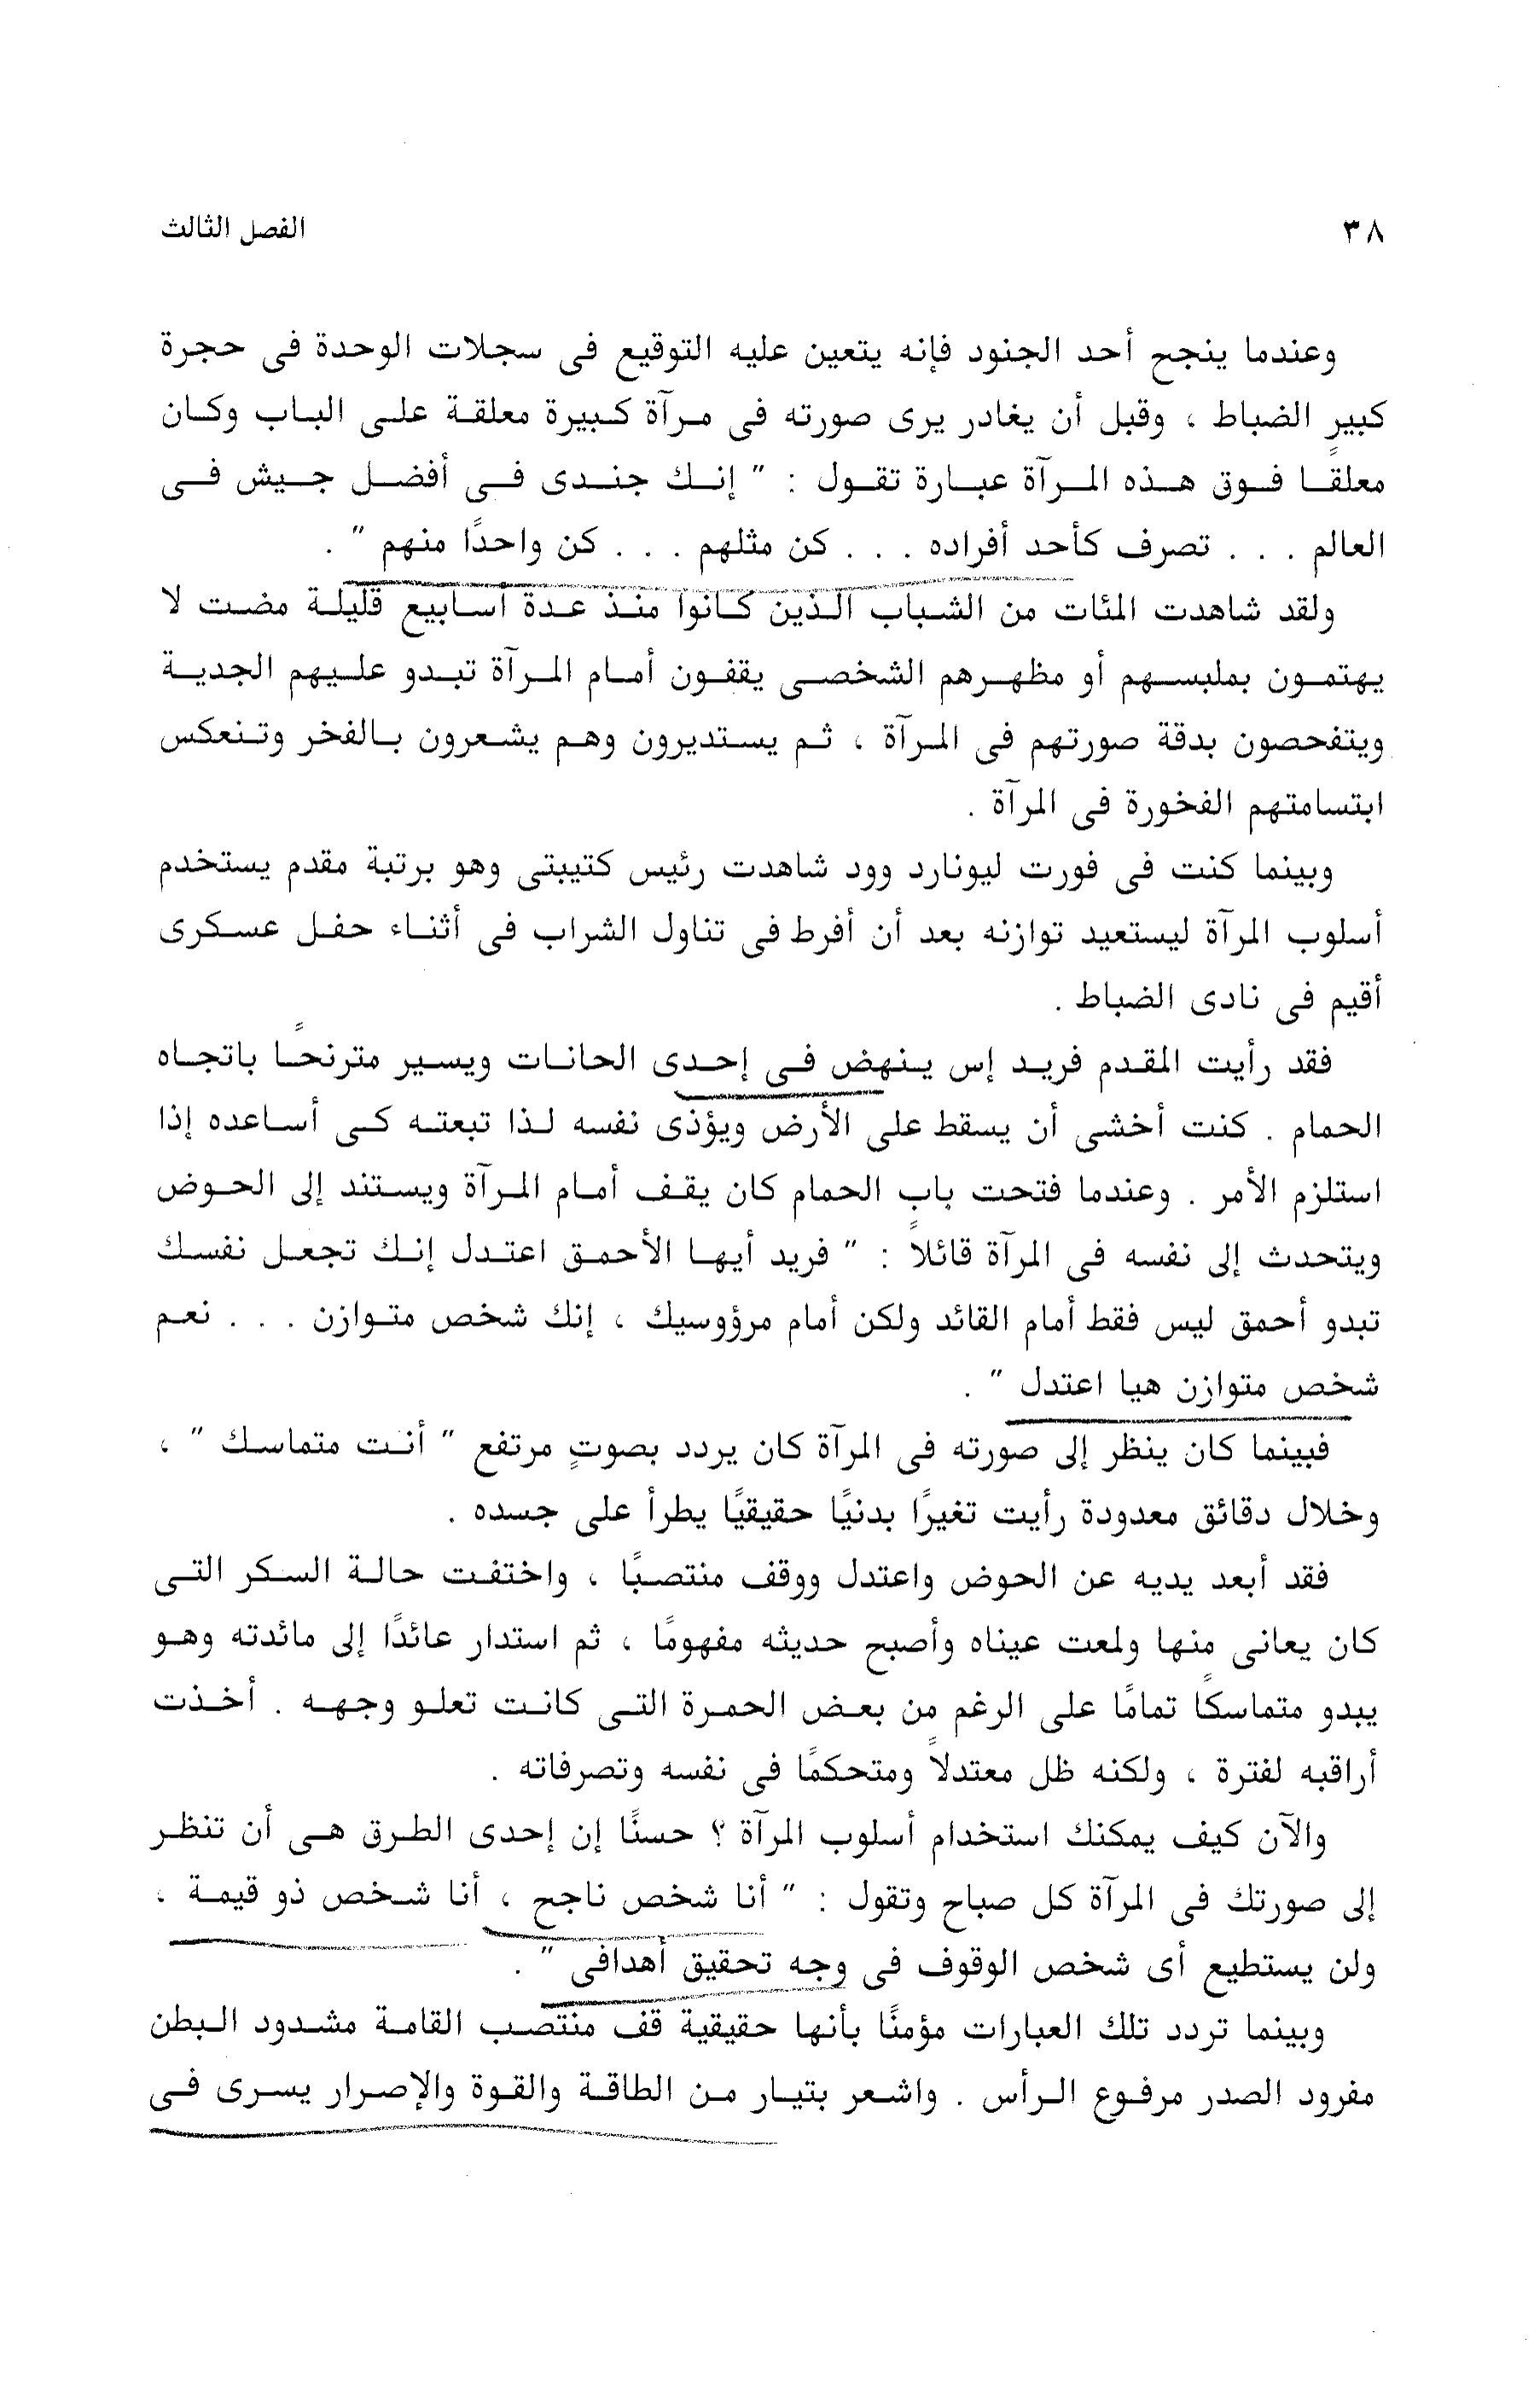 ٣٨ الفصل الثالث
وعندما ينجح أحد الجنود فإنه يتعين عليه التوقيع فى سجلات الوحدة فى حجرة
كبير الضباط ، وقبل أن يغادر يرى صورته فى مرآة كبيرة معلقة على الباب وكان
معلقًا فوق هذه المرآة عبارة تقول : " إنك جندى فى أفضل جيش فى
العالم . . . تصرف كأحد أفراده . . . كن مثلهم . . . كن واحدًا منهم " .
ولقد شاهدت المئات من الشباب الذين كانوا منذ عدة أسابيع قليلة مضت لا
يهتمون بملبسهم أو مظهرهم الشخصى يقفون أمام المرآة تبدو عليهم الجدية
ويتفحصون بدقة صورتهم فى المرآة ، ثم يستديرون وهم يشعرون بالفخر وتنعكس
ابتسامتهم الفخورة فى المرآة .
وبينما كنت فى فورت ليونارد وود شاهدت رئيس كتيبتى وهو برتبة مقدم يستخدم
أسلوب المرآة ليستعيد توازنه بعد أن أفرط فى تناول الشراب فى أثناء حفل عسكرى
أقيم فى نادى الضباط .
فقد رأيت المقدم فريد إس ينهض فى إحدى الحانات ويسير مترنحًا باتجاه
الحمام . كنت أخشى أن يسقط على الأرض ويؤذى نفسه لذا تبعته كى أساعده إذا
استلزم الأمر . وعندما فتحت باب الحمام كان يقف أمام المرآة ويستند إلى الحوض
ويتحدث إلى نفسه فى المرآة قائلاً : " فريد أيها الأحمق اعتدل إنك تجعل نفسك
تبدو أحمق ليس فقط أمام القائد ولكن أمام مرؤوسيك ، إنك شخص متوازن . . . نعم
شخص متوازن هيا اعتدل " .
فبينما كان ينظر إلى صورته فى المرآة كان يردد بصوتٍ مرتفع " أنت متماسك " ،
وخلال دقائق معدودة رأيت تغيرًا بدنيًا حقيقيًا يطرأ على جسده .
فقد أبعد يديه عن الحوض واعتدل ووقف منتصبًا ، واختفت حالة السكر التى
كان يعانى منها ولمعت عيناه وأصبح حديثه مفهومًا ، ثم استدار عائدًا إلى مائدته وهو
يبدو متماسكًا تمامًا على الرغم من بعض الحمرة التى كانت تعلو وجهه . أخذت
أراقبه لفترة ، ولكنه ظل معتدلاً ومتحكمًا فى نفسه وتصرفاته .
والآن كيف يمكنك استخدام أسلوب المرآة ؟ حسنًا إن إحدى الطرق هى أن تنظر
إلى صورتك فى المرآة كل صباح وتقول : " أنا شخص ناجح ، أنا شخص ذو قيمة ،
ولن يستطيع أى شخص الوقوف فى وجه تحقيق أهدافى " .
وبينما تردد تلك العبارات مؤمنًا بأنها حقيقية قف منتصب القامة مشدود البطن
مفرود الصدر مرفوع الرأس . واشعر بتيار من الطاقة والقوة والإصرار يسرى فى